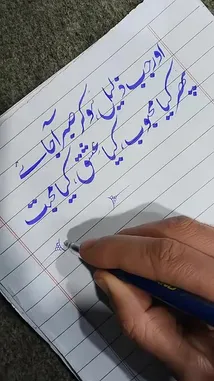 اور جب ذلیل ہو کر صبر آجائے
پھر کیا محبوب، کیا عشق، کیا محبت